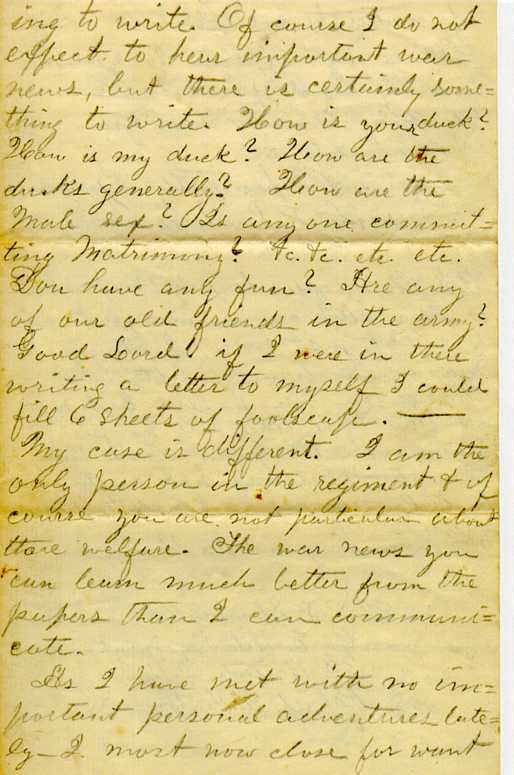 ing to write. Of course I do not
expect to hear important war
news, but there is certainly some=
thing to write. How is your duck?
How is my duck? How are the
ducks generally? How are the
Male sex? Is any one commit=
ting Matrimony? &c. &c. etc. etc.
Dou have any fun? Are any
of our old friends in the army?
Good Lord! if I were in there
writing a letter to myself I could
fill 6 sheets of foolscap. —
My case is different. I am the
only person in the regiment & of
course you are not particular about
thare welfare. The war news you
can learn much better from the
papers than I can communi=
cate.
As I have met with no im=
portant personal adventures late=
ly — I must now close for want